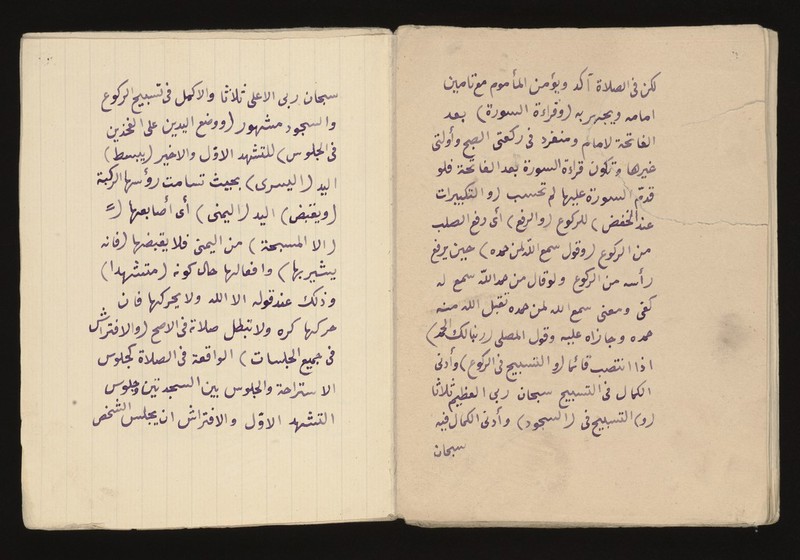 لكن في الصلاة آكد ويؤمن المأموم مع تامين
امامه ويجهر به (وقراءة السورة) بعد
الفاتحة لامام ومنفرد في ركعتي الصبح وأولتي
غيرها وتكون قراءة السورة بعد الفاتحة فلو
قدم السورة عليها لم تحسب (و التكبيرات
عند الخفض) للركوع (والرفع) أى رفع الصلب
من الركوع (وقول سمع الله لمن حمده) حين يرفع
رأسه من الركوع ولو قال من حمد الله سمع له
كفى ومعنى سمع الله لمن حمده تقبل الله منه
حمده وجازاه عليه وقول المصلى (ربنا لك الحمد)
اذا انتصب قائما (و التسبيح في الركوع) وأدنى
الكمال في التسبيح سبحان ربى العظيم ثلاثا
(و) التسبيح في (السجود) وأدنى الكمال فيه
سبحان
سبحان ربى الاعلى ثلاثا والاكمل في تسبيح الركوع
والسجود مشهور (ووضع اليدين على الفخذين
في الجلوس) للتشهد الاول والاخير (يبسط)
اليد (اليسرى) بحيث تسامت رؤسها الركبة
(ويقبض) اليد (اليمنى) أى أصابعها (=
(الا المسبحة) من اليمنى فلا يقبضها (فانه
يشير بها) رافعا لها حال كونه (متشهدا)
وذلك عند قوله الا الله ولا يحركها فان
حركها كره ولا تبطل صلاته في الاصح (والافتراش
في جميع الجلسات) الواقعة في الصلاة كجلوس
الاستراحة والجلوس بين السجدتين وجلوس
التشهد الاول والافتراش ان يجلس الشخص